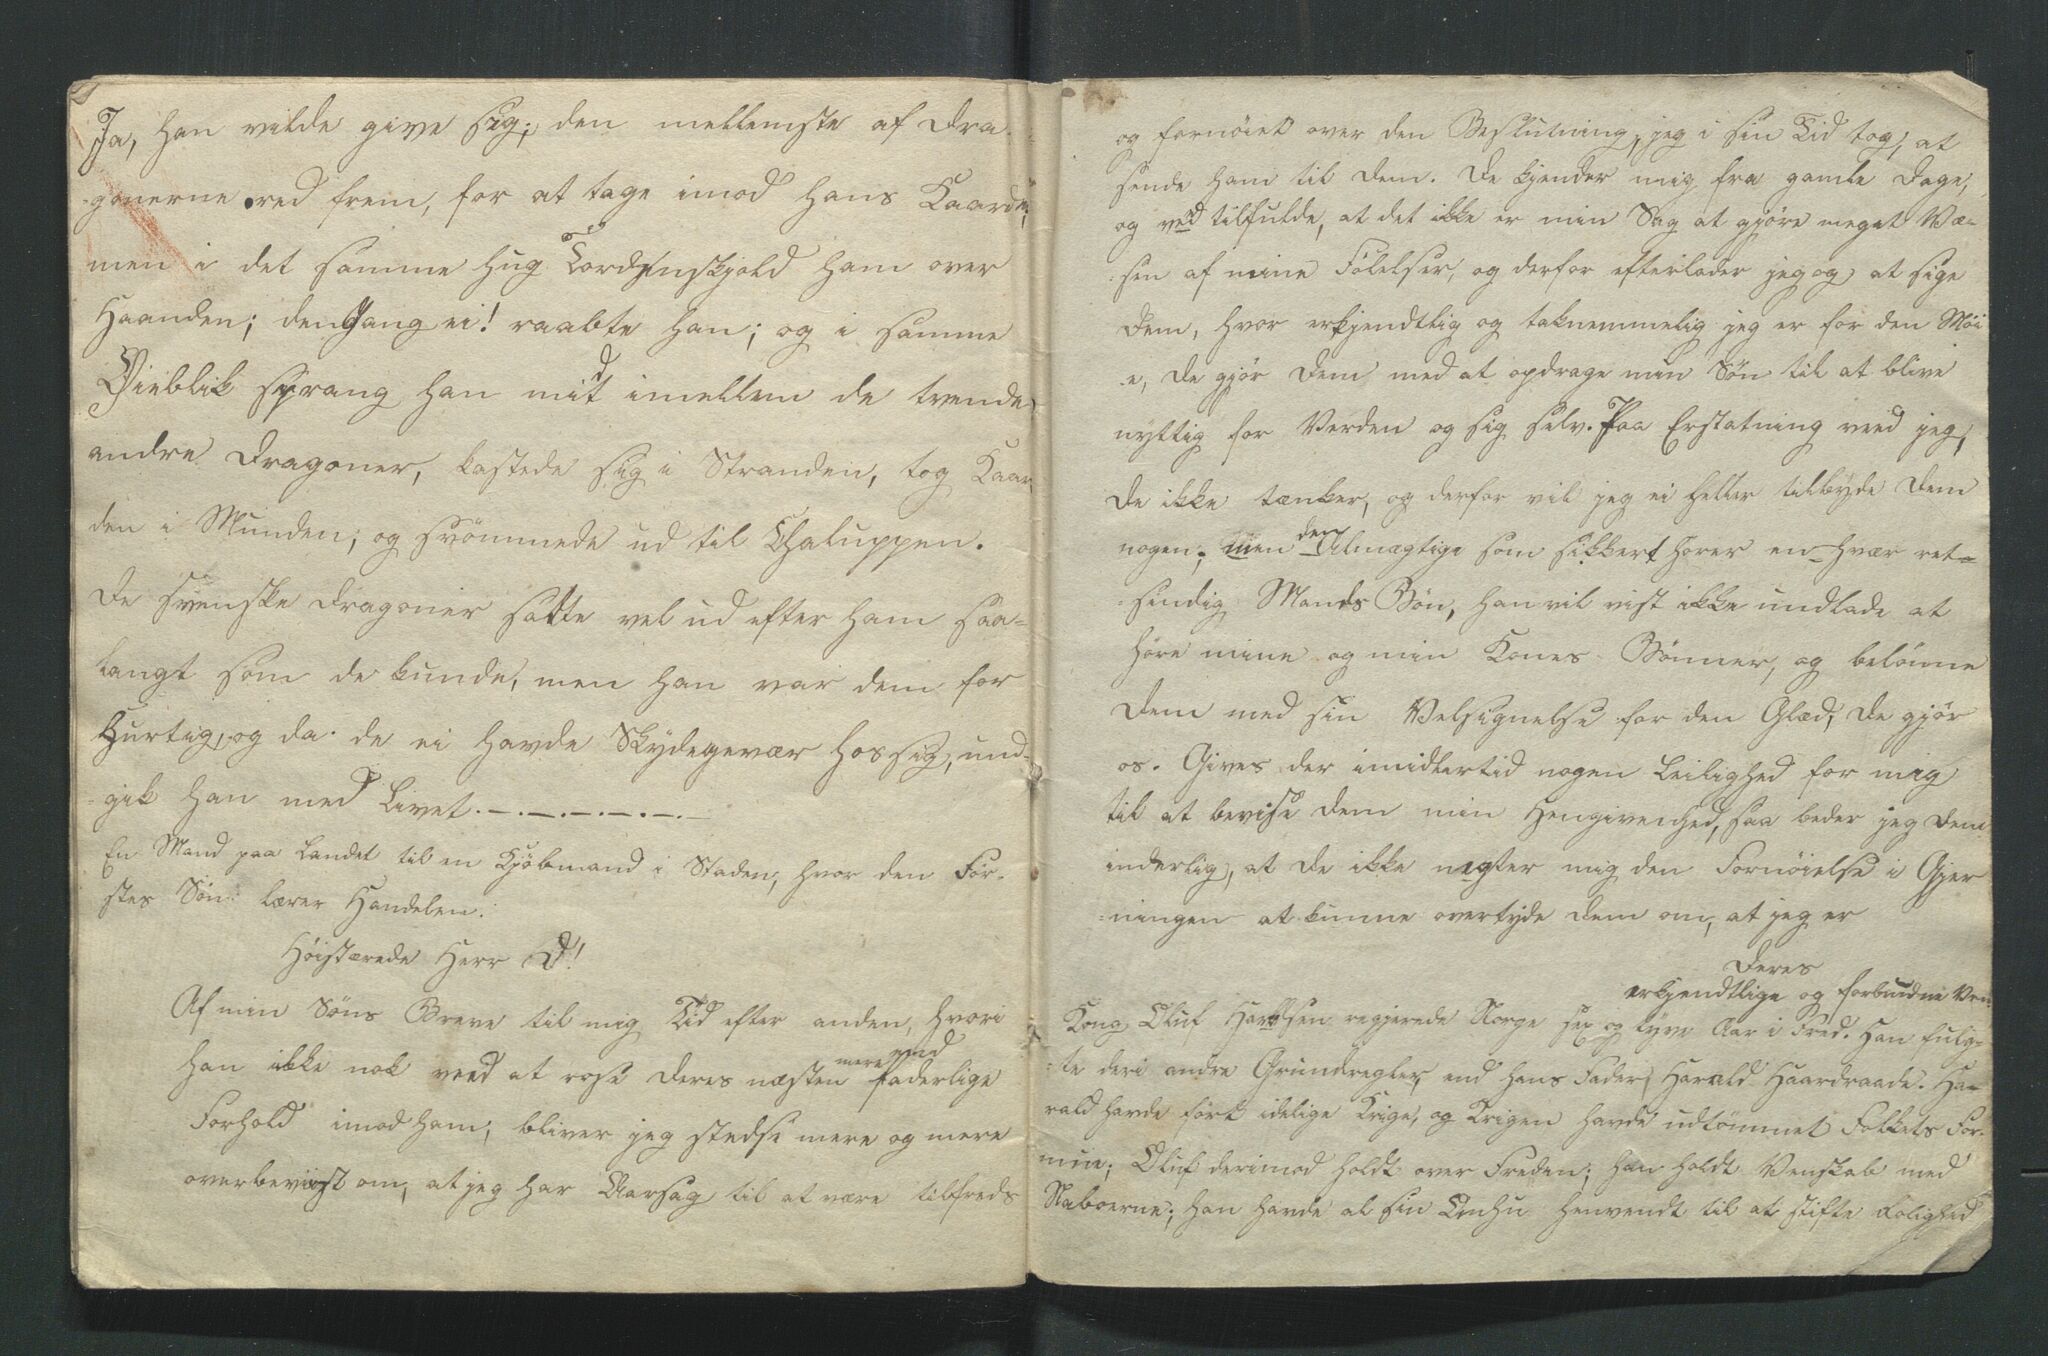 Ja, han vilde give sig; den mellemste af Dra-
gonerne red frem, for at tage imod hans Kaarde,
men i det samme hug Tordenskjold ham over
Haanden; dengang ei! raabte han; og i samme
Øieblik sprang han midt imellem de tvende
andre Dragoner, kastede sig i Stranden, tog Kaar
den i Munden; og svömmede ud til Chaluppen.
De svenske Dragoner satte vel ud efter ham saa-
langt som de kunde, men han var dem for
Hurtig, og da de ei havde Skydegevær hos sig, und-
gik han med Livet.
En Mand paa Landet til en Kjøbmand i Staden, hvor den För-
stes Sön lærer Handelen.
Höistærede Herr D!
Af min Söns Breve til mig Tid efter anden, hvori
han ikke nok veed at rose Deres næsten mere end faderlige
Forhold imod ham, bliver jeg stedse mere og mere
overbeviist om, at jeg har Aarsag til at være tilfreds
og fornöiet over den Beslutning, jeg i sin Tid tog, at
sende ham til Dem. De kjender mig fra gamle Dage,
og veed tilfulde, at det ikke er min Sag at gjöre meget Væ-
sen af mine Fölelser, og derfor efterlader jeg og at sige
Dem, hvor erkjendtlig og taknemmelig jeg er for den Möi
e, De gjör Dem med at opdrage min Sön til at blive
nyttig for Verden og sig selv. Paa Erstatning veed jeg,
De ikke tænker, og derfor vil jeg ei heller tilbyde Dem
nogen; men den Almægtige som sikkert hörer en hvær ret-
sindig Mands Bön, han vil vist ikke undlade at
höre mine og min Kones Bönner, og belönne
Dem med sin Velsignelse for den Glæd, De gjör
os. Gives der imidlertid nogen Leilighed for mig
til at bevise Dem min Hengivenhed, saa beder jeg Dem
inderlig, at De ikke negter mig den Fornöielse i Gjer
ningen at kunne overtyde Dem om, at jeg er
Deres
erkjendtlige og forbundne Ven
Kong Oluf Haraldsen regjerede Norge sex og tyve Aar i Fred. Han fulg-
te deri andre Grundregler, end hans Fader, Harald Haardraade. Ha-
rald havde fört idelige Krige, og Krigen havde udtömmet Folkets For-
mue; Oluf derimod holdt over Freden; han holdt Venskab med
Naboerne; han havde al sin Omhu henvendt til at stifte Rolighed